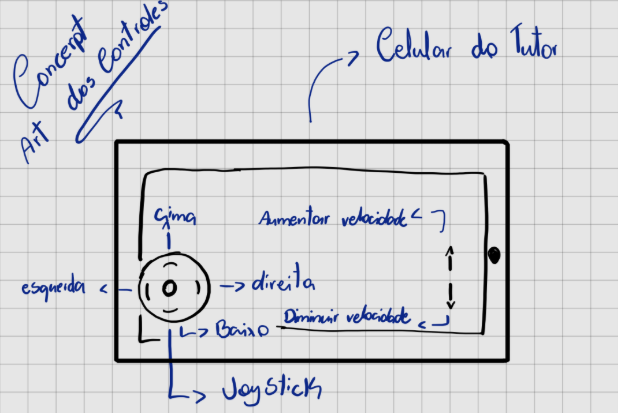 Concerpt
Art dos Controles
Celular do Tutor
Cima
Aumentar velocidade
esquerda
direita
Diminuir velocidade
Baixo
Joystick